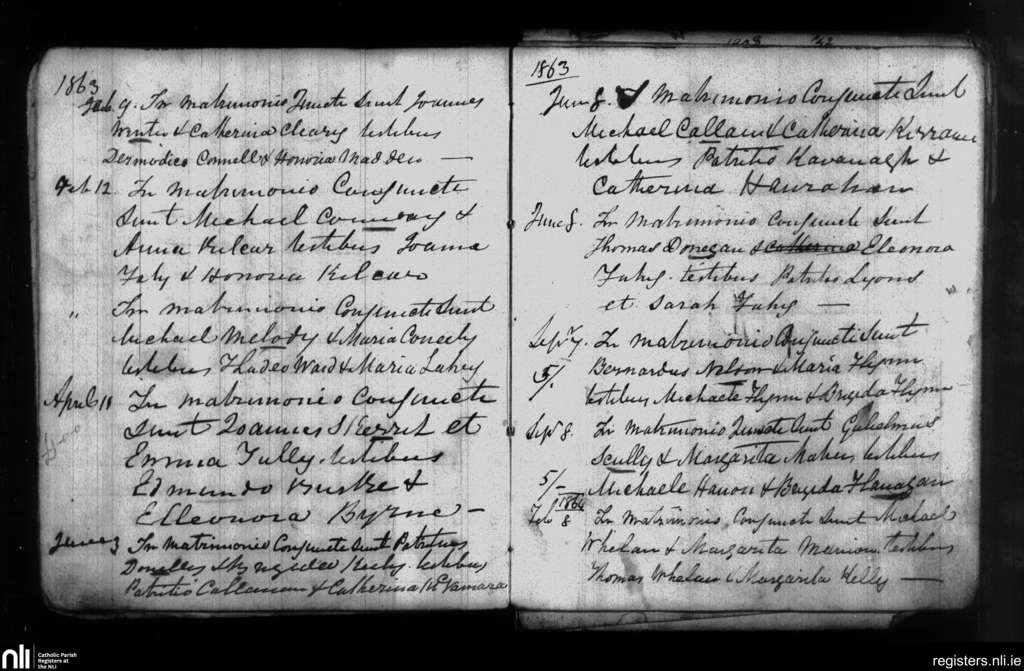 1863
Feb 9. In Matrimonio Juncti Sunt Joannes
Winter & Catherina Cleary testibus
Dermodico Connell & Honoria Madden —
Feb 12 In Matrimonio Conjuncti
Sunt Michael Conway &
Anna Kilcar testibus Joanna
Fahy & Honoria Kilcar
" In matrimonio Conjuncti Sunt
Michael Melody & Maria Coneely
testibus Thadeo Ward & Maria Lahey
April 11 In Matrimonio Conjuncti
Sunt Joannes Skerrit et
Emma Tully. testibus
Edmundo Burke &
Elleonora Byrne —
June 3 In Matrimonio Conjuncti Sunt Patritius
Donelley & testibus
Patritio Callanan & Catherina McNamara
1863
June 8. In Matrimonio Conjuncti Sunt
Michael Callan & Catherina Kirrane
testibus Patritio Kavanagh &
Catherina Hanrahan
June 8. In Matrimonio Conjuncti Sunt
Thomas Donegan & Catherina Eleonora
Fahy. testibus Patritio Lyons
et Sarah Fahy —
Sepr 7. In matrimonio Conjuncti Sunt
5/- Bernardus Nelson & Maria Flynn
testibus Michaele Flynn & Brigida Flynn
Sepr 8. In Matrimonio Juncti Sunt Gulielmus
Scully & Margarita Maher testibus
5/- Michaele Hanon & Brigida Flanagan
1864
Feb 8 In Matrimonio Conjuncti Sunt Michael
Whelan & Margarita Manion testibus
Thomas Whelan & Margarita Kelly —
nli Catholic Parish
Registers at
the NLI
registers.nli.ie